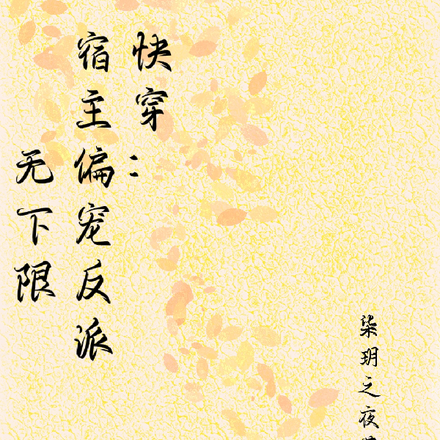 快穿：
宿主偏宠反派
无下限
柒玥之夜